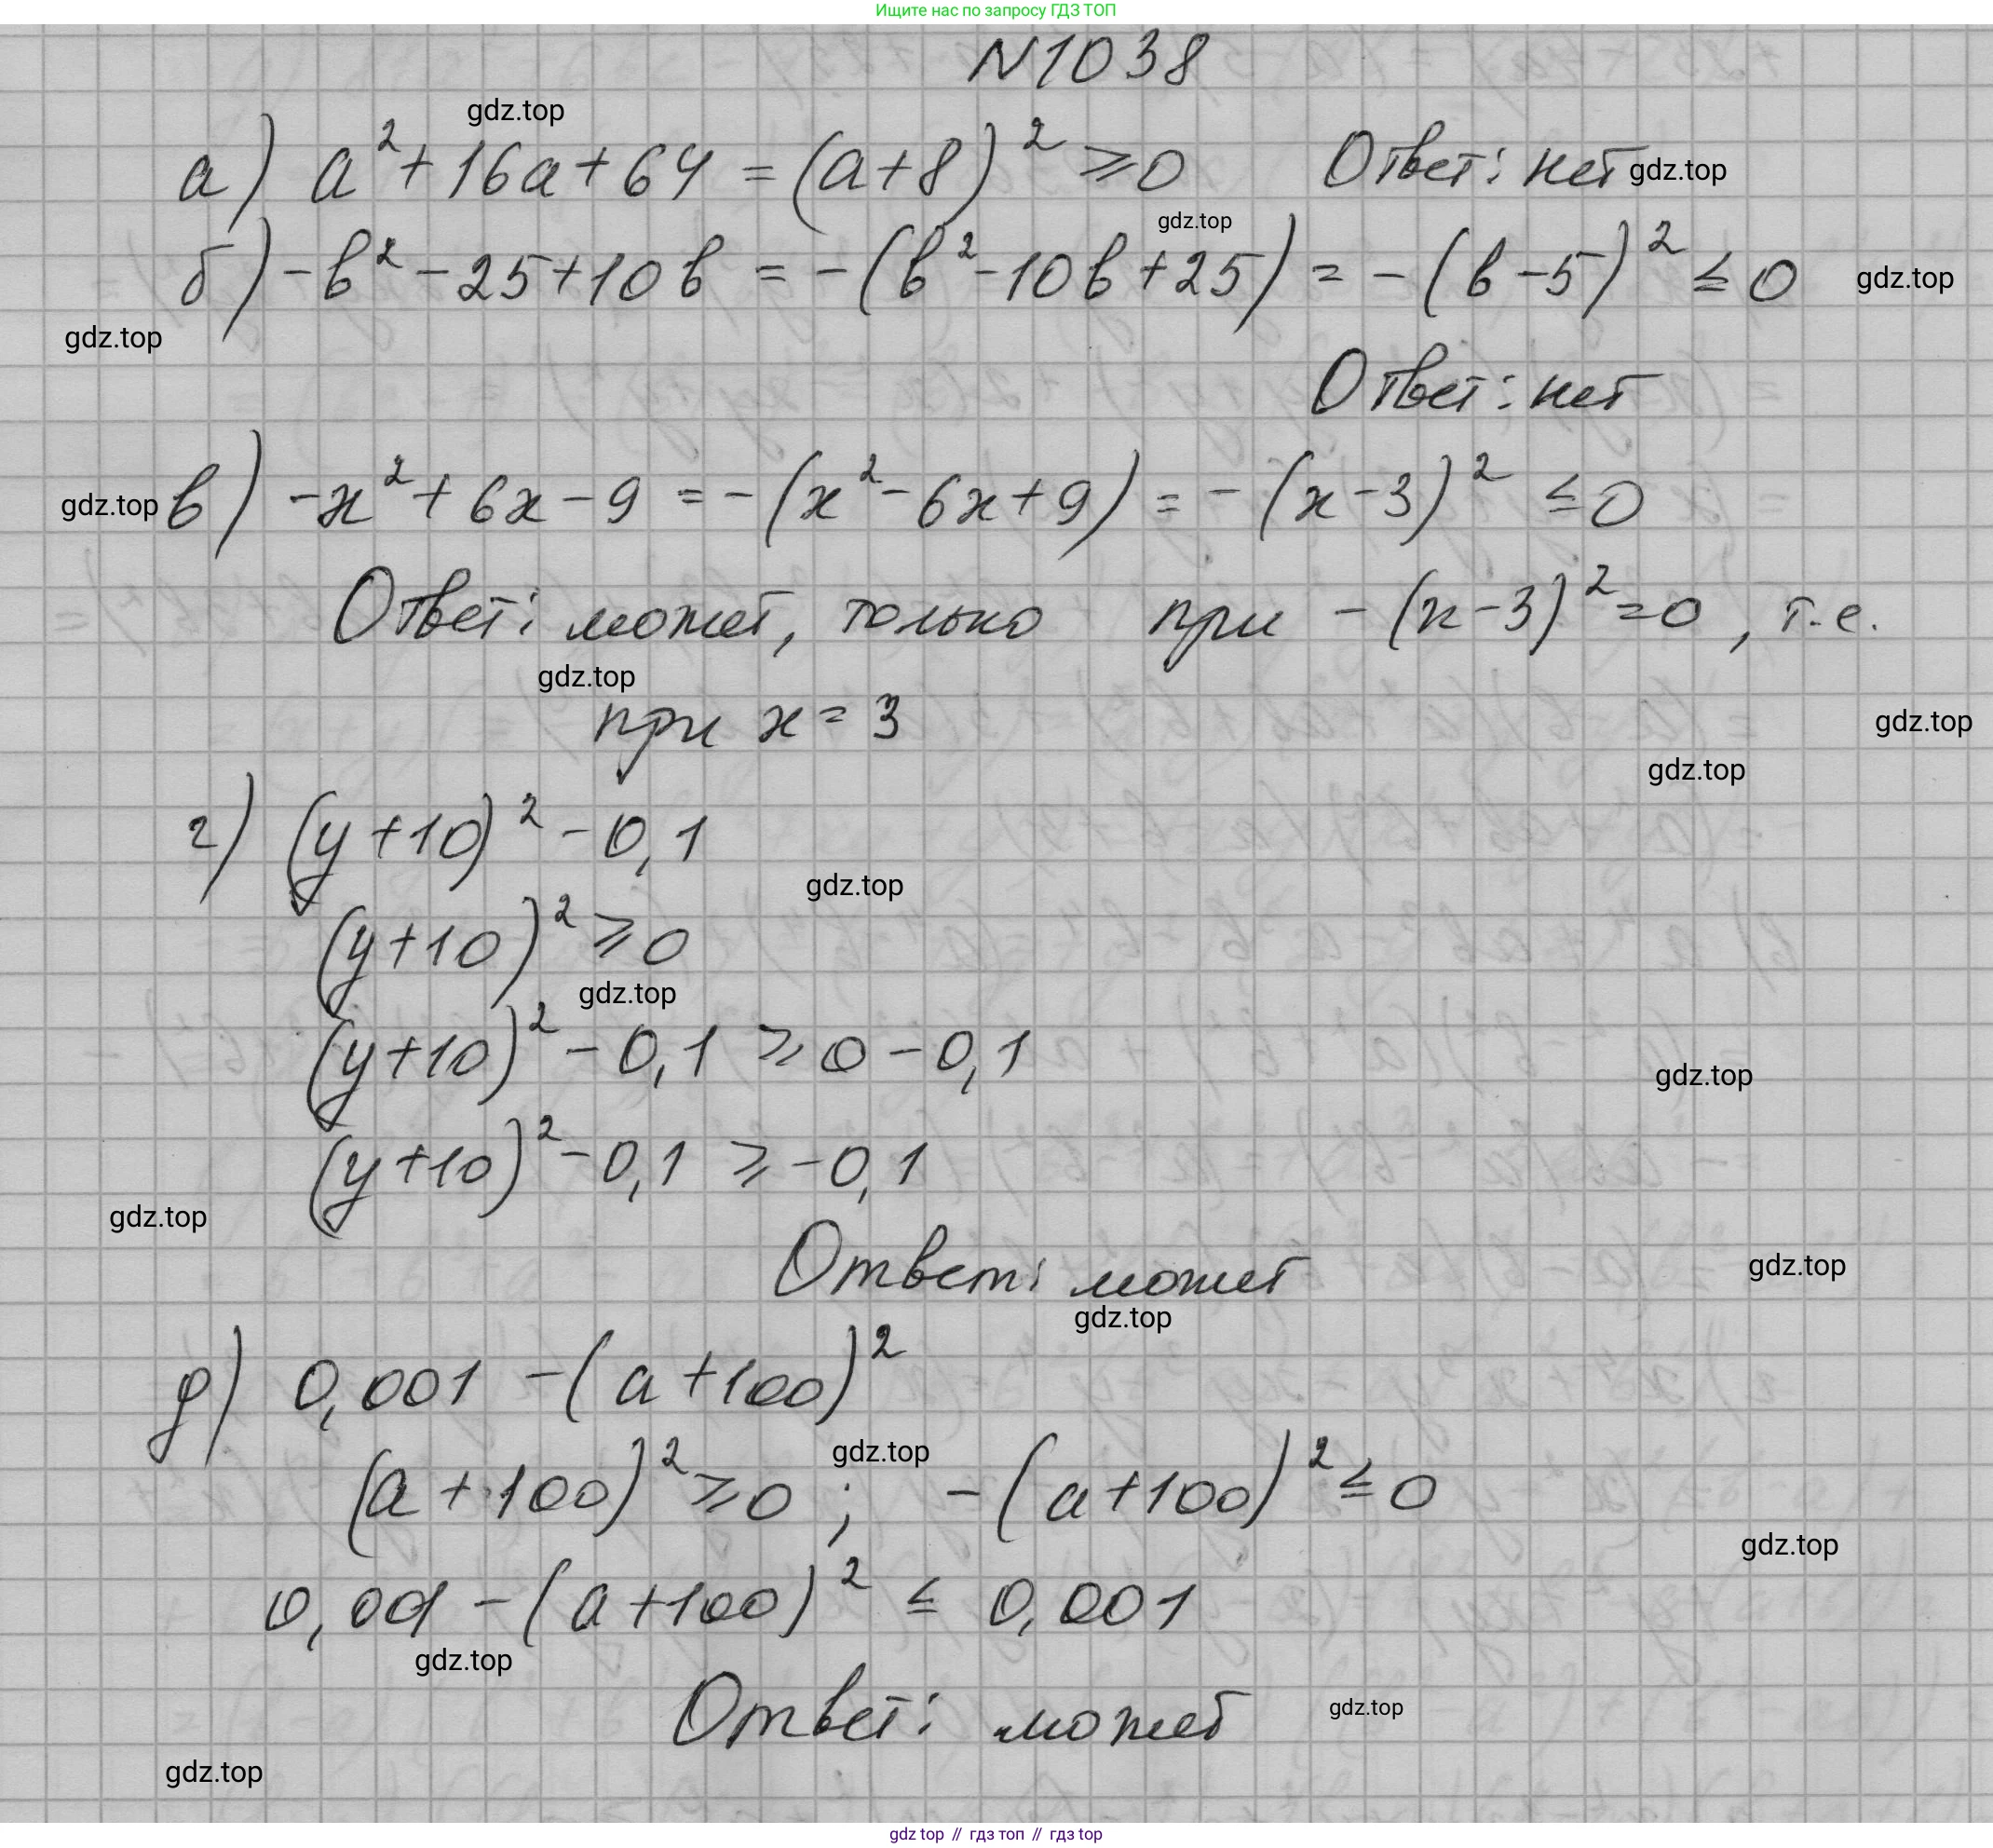 Ищите нас по запросу ГДЗ ТОП
N1038
gdz.top
а) a² + 16a + 64 = (a+8)² ≥ 0 Ответ: нет gdz.top
gdz.top
б) -b² - 25 + 10b = -(b² - 10b + 25) = -(b-5)² ≤ 0 gdz.top
gdz.top
Ответ: нет
gdz.top в) -x² + 6x - 9 = -(x² - 6x + 9) = -(x-3)² ≤ 0
Ответ: может, только при -(x-3)² = 0, т.е.
gdz.top
при x = 3 gdz.top
gdz.top
г) (y+10)² - 0,1
gdz.top
(y+10)² ≥ 0
gdz.top
(y+10)² - 0,1 ≥ 0 - 0,1
gdz.top
(y+10)² - 0,1 ≥ -0,1
gdz.top
Ответ: может gdz.top
gdz.top
д) 0,001 - (a+100)²
gdz.top
(a+100)² ≥ 0; -(a+100)² ≤ 0
gdz.top
0,001 - (a+100)² ≤ 0,001
gdz.top
Ответ: может gdz.top
gdz.top
gdz top // гдз топ // gdz top